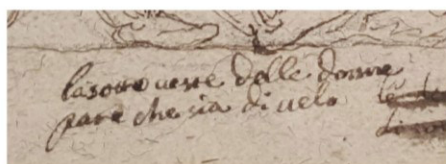 la sotto veste delle donne
pare che sia di velo